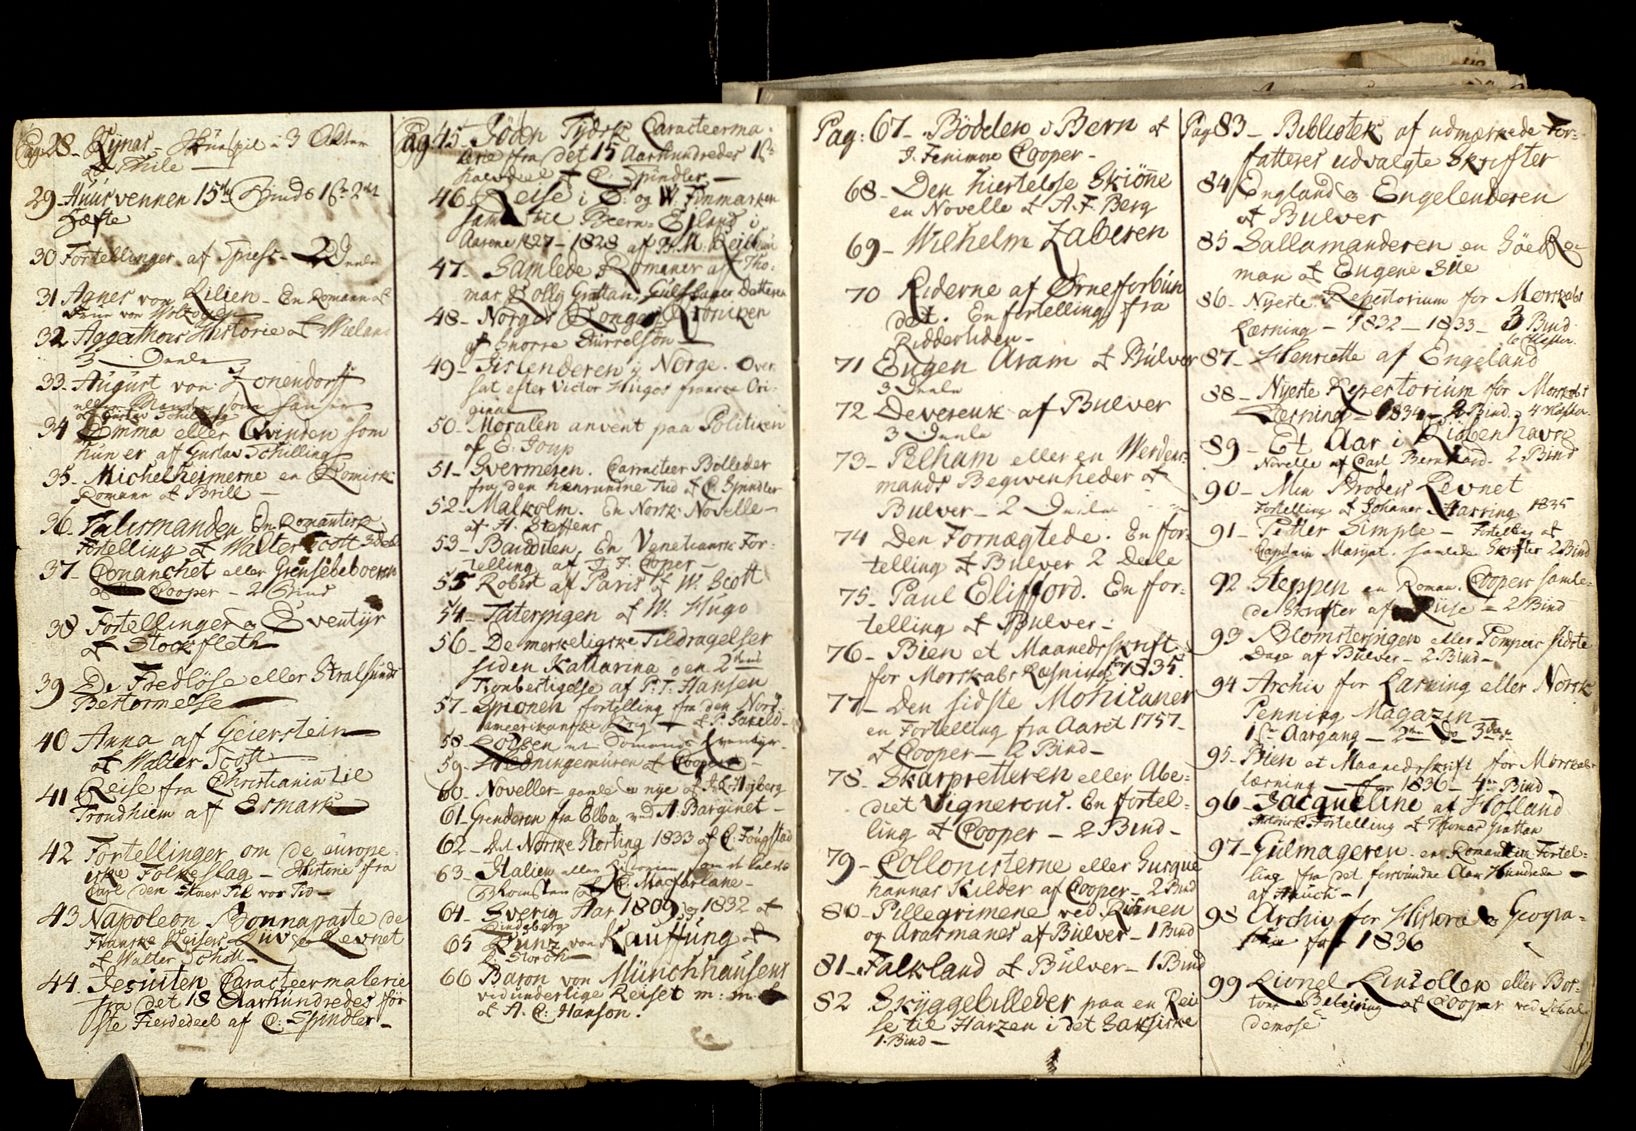 Pag: 28 - Kynas - Skuespil i 3 Akter
af Thile -
29 - Huusvennen 15de Bind 1ste 2det
Hæfte
30 Fortellinger af Spiess - 2 Deele
31 Agnes von Lilien - En Romann af
32 Agathons Historie af Wieland
3 Deele
33. August von Zonendorff
eller Manden som han er
af Gustav Schilling
34 Emma eller Qvinden som
hun er af Gustav Schilling
35. Michelheimerne en Komisk
Romann af Brill -
36. Talismanden En Romantisk
Fortelling af Walter Scott 3 Deele
37 - Conanchet eller Grensebeboeren
af Cooper - 2 Bind
38 Fortellinger og Eventyr
af Stockfleth
39 De Fredløse eller Stralsunds
Bestormelse
40 Anna af Geierstein
af Walter Scott
41 Reise fra Christiania til
Trondhiem af Esmark
42 Fortellinger om de europe-
iske Folkeslag - Historie fra
Carl den Stoer til vor Tid -
43 Napoleon Bonnaparte de
Franske Keisers Liv & Levnet
af Walter Schott -
44. Jesuiten Caracteermalerie
fra det 18 Aarhundredes før
ste Fierdedeel af C: Spindler -
Pag 45 - Jøden Tydsk Caracteerma-
lerie fra det 15 Aarhundredes 1ste
halvdeel af C: Spindler -
46. Reise i Ø: og W. Finmarken
samt til Beern-Eiland i
Aarene 1827 - 1828 af B. M. Keilhau
47 - Samlede Romaner af Tho-
mas Kolly Grattan, Gulsmagers Datteren
48 - Norges Konge Krøniken
af Snorre Sturrelson
49 - Iislenderen i Norge. Over
sat efter Victor Hugos franske Ori-
ginal
50 - Moralen anvent paa Politiken
af E. Jouy
51 - Svermeren. Caracteer Billeder
fra den henrundne Tid af C. Spindler
52 - Malkolm. En Norsk Novelle -
af H. Steffens
53 - Banditen, En Venetiansk For-
telling af J. F. Cooper -
55 Robert af Paris af W. Scott
54 - Taterpigen af W. Hugo
56 - De merkeligste Tildragelser
siden Katharina den 2dens
Tronbestigelse af P. T. Hansen
57 - Spionen fortelling fra den Nord-
amerikanske Krig -
58 - en Domaners Eventyr -
59 - af Cooper -
60 - Noveller - gamle & nye af J. L. Heiberg
61 - Grenderen fra Elba ved A. Barginet -
62 - Det Norske Storting 1833 af C. Fougstad
63 - Italien eller
af C. Macfarlane -
64 - Sverig Aar 1809 og 1832 af
Lindeberg
65 Kunz von Kauffung af
C. Storch -
66 Baron von Münchhausens
vidunderlige Reiser m: m:
af A. C. Hanson.
Pag: 67 - Bødelen i Bern af
J. Fenimore Cooper -
68 - Den hierteløse Skiønne
en Novelle af A. F. Berg
69 - Wilhelm Zaberen
70 Riderne af Ørneforbun
det. En fortelling fra
Riddertiden -
71 Eugen Aram af Bulver
3 Deele
72 Devereux af Bulver
3 Deele
73 - Pelham eller en Werdens-
mands Begivenheder af
Bulver - 2 Deele
74 Den Fornægtede. En for-
telling af Bulver 2 Dele
75 - Paul Clifford. En for-
telling af Bulver -
76 - Bien et Maanedsskrift
for Morskabs Læsning for 1835.
77 - Den sidste Mohicaner
en Fortelling fra Aaret 1757 -
af Cooper - 2 Bind -
78 - Skarpretteren eller Abe-
diet Vignerons. En fortel-
ling af Cooper - 2 Bind -
79 - Collonisterne eller Susque
hannas Kilder af Cooper - 2 Bind
80 - Pillegrimene ved Rinen
og Arasmanes af Bulver - 1 Bind
81 - Falkland af Bulver - 1 Bind
82 Skyggebilleder paa en Rei
se til Harzen i det Saksiske
1. Bind -
Pag 83 - Bibliotek af udmerkede For-
fatteres udvalgte Skrifter
84 England & Engelenderen
af Bulver
85 Sallamanderen en Søe Ro-
man af Eugene Süe
86 - Nyeste Repertorium for Morskabs
Læsning - 1832 - 1833 - 3 Bind
6 Hefter.
87 - Henriette af Engeland
88 - Nyeste Repertorium for Morskabs
Læsning - 1834 - 2 Bind. 4 Hefter
89 - Et Aar i Kiøbenhavn
Novelle af Carl Bernhard. 2 Bind
90 - Min Broders Levnet
Fortelling af Johanes Harring 1835
91 - Petter Simple - Fortelling af
Captain Maryat. samlede Skrifter 2 Bind
92 Steppen en Roman. Coopers samle-
de Skrifter af Ruse - 2 Bind
93 Blomsterpigen eller Pompeis sidste
Dage af Bulver - 2 Bind -
94 Archiv for Læsning eller Norsk
Penning Magazin
1ste Aargang - 2den Do 3die Do
95 - Bien et Maanedsskrift for Morskabs
læsning - for 1836 - 4de Bind -
96 - Jacqueline af Holland
historisk Fortelling af Thomas Grattan
97 - Gulmageren. en Romantisk Fortel-
ling fra det forsvundne Aar Hundrede -
af Hauch -
98 Archiv for Historie & Geogra-
phie for 1836
99 Lionel Lincollen eller Bos-
tons Beleiring af Cooper ved Schal-
demose